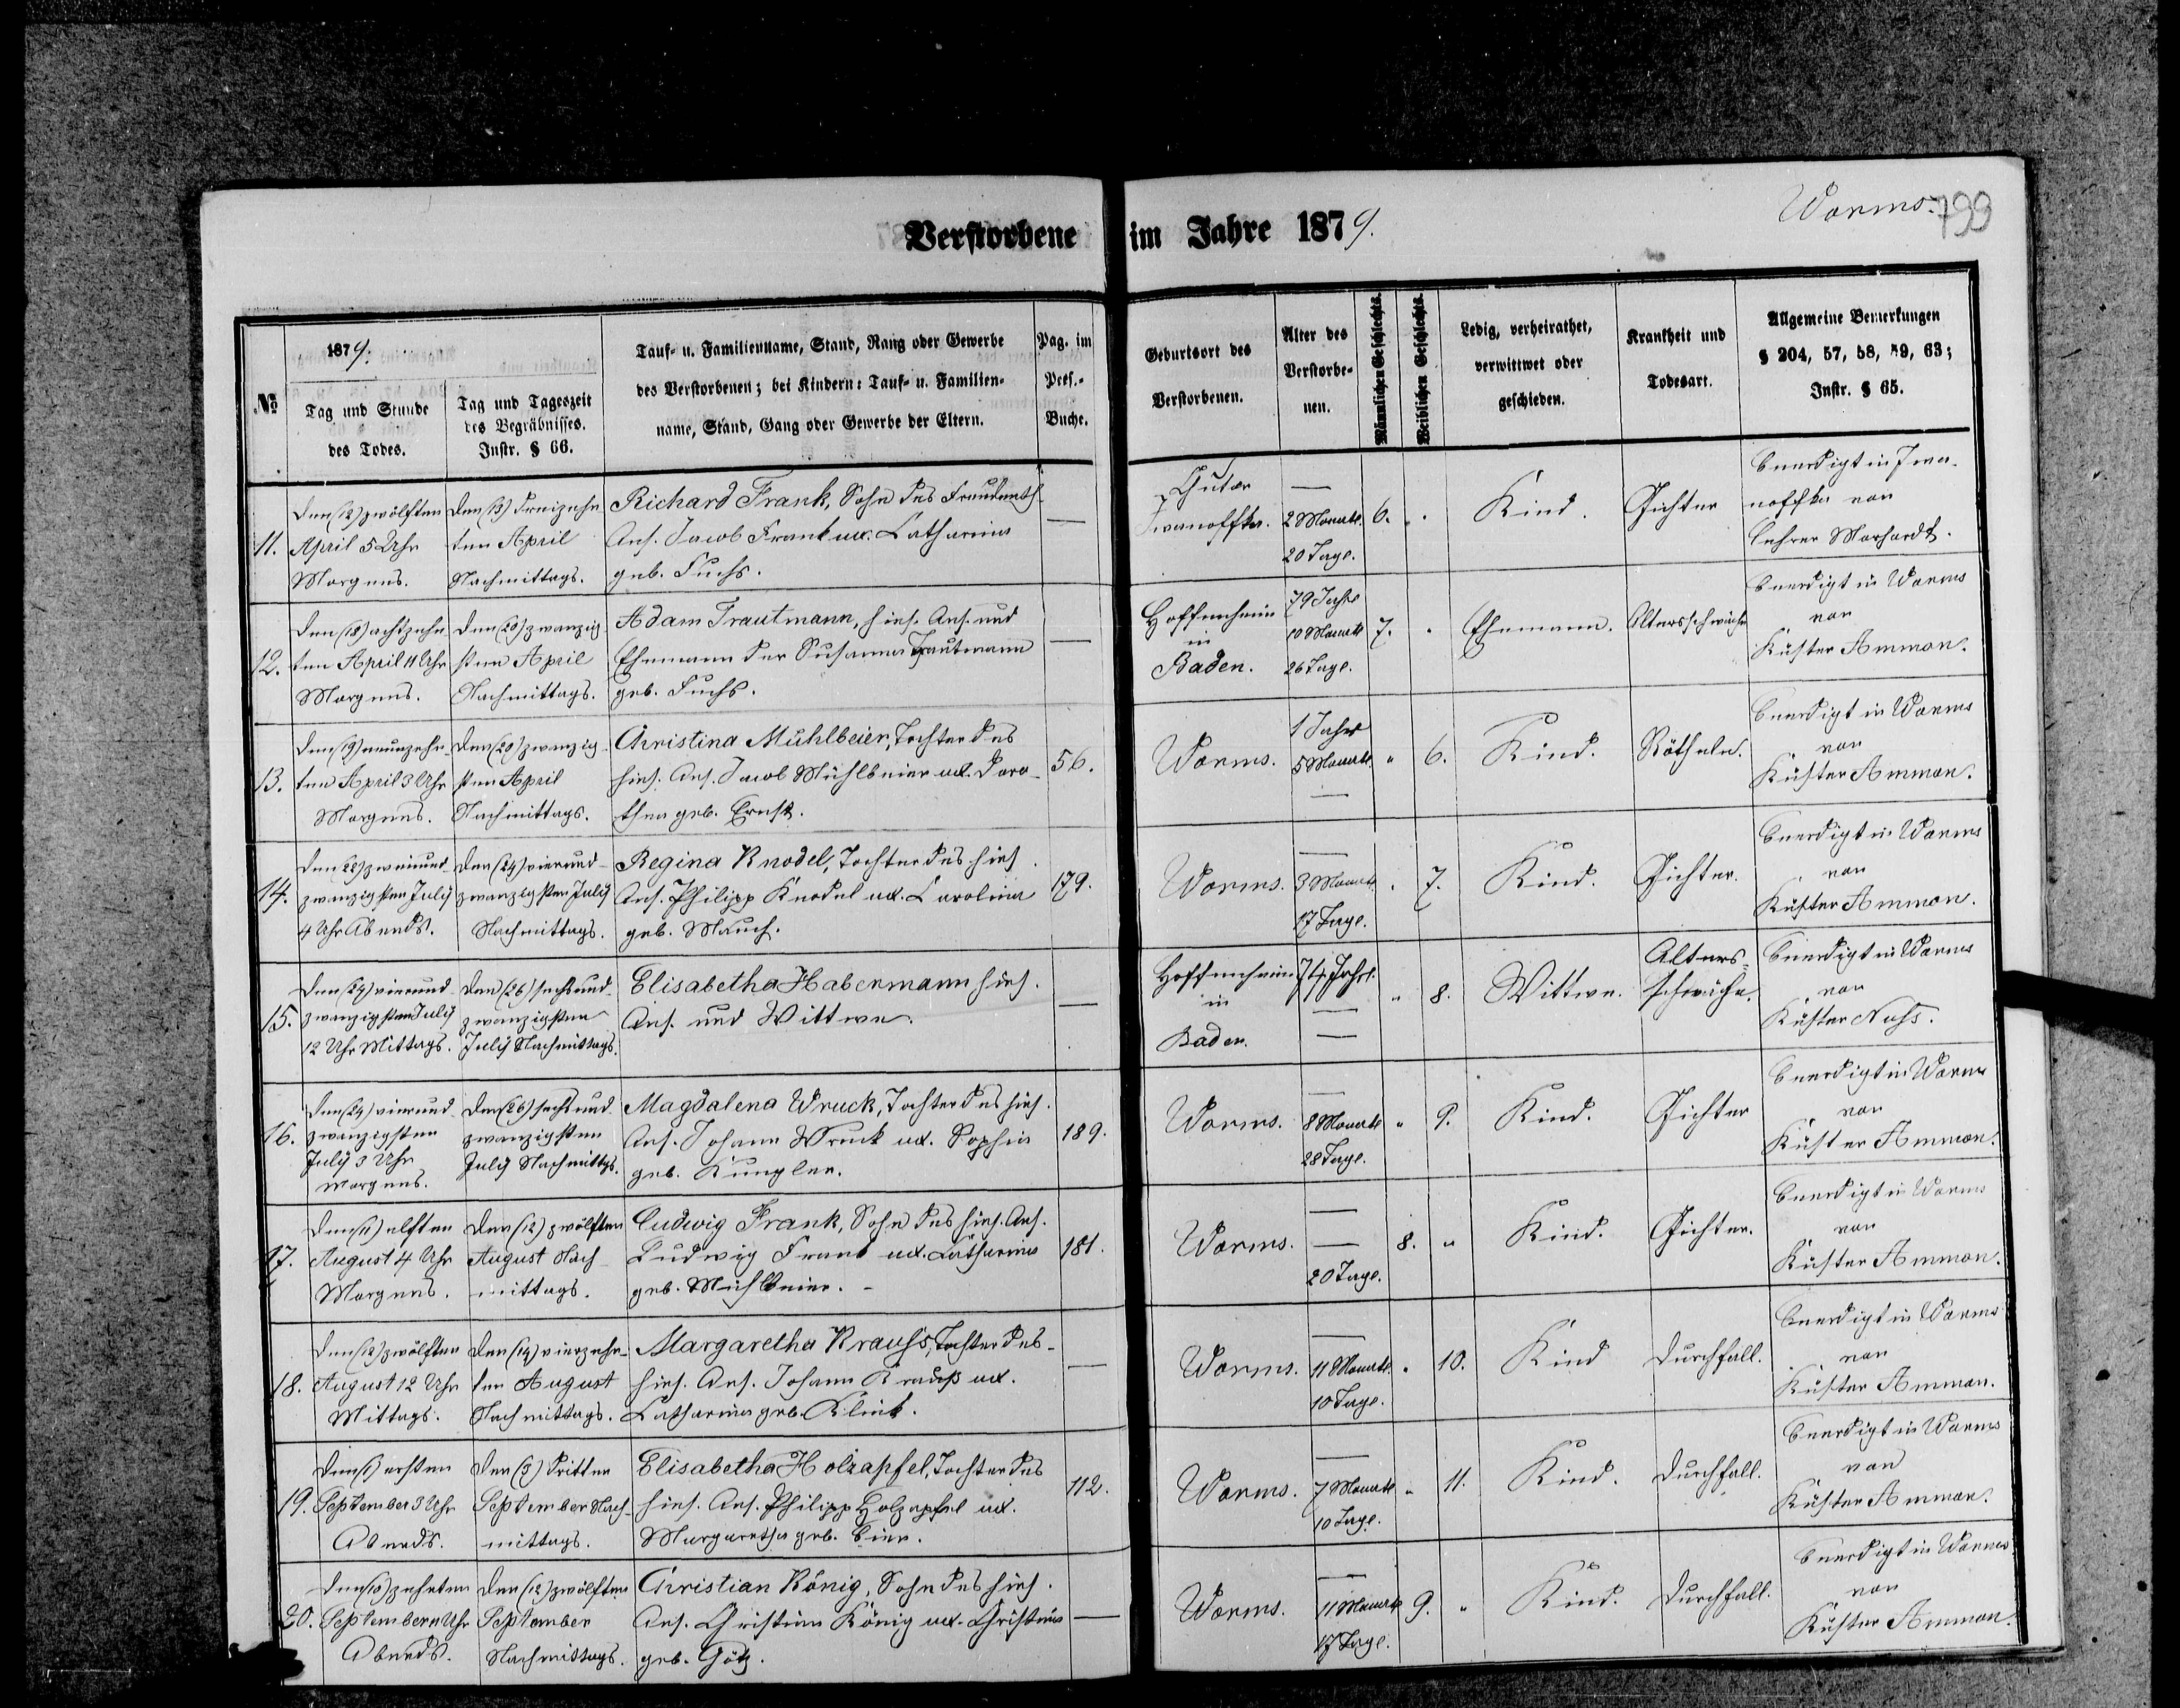 Worms. 799
Verstorbene im Jahre 1879.
№
1879.
Tag und Stunde
des Todes.
Tag und Tageszeit
des Begräbnisses.
Instr. § 66.
Tauf- u. Familienname, Stand, Rang oder Gewerbe
des Verstorbenen; bei Kindern: Tauf- u. Familien-
name, Stand, Gang oder Gewerbe der Eltern.
Pag. im
Pers.-
Buche.
Geburtsort des
Verstorbenen.
Alter des
Verstorbe-
nen.
Männlichen Geschlechts.
Weiblichen Geschlechts.
Ledig, verheirathet,
verwittwet oder
geschieden.
Krankheit und
Todesart.
Allgemeine Bemerkungen
§ 204, 57, 58, 59, 63;
Instr. § 65.
11.
Den (12) zwölften
April 5 Uhr
Morgens.
Den (13) dreizehn
ten April
Nachmittags.
Richard Frank, Sohn des Freudenth.
Ans. Jacob Frank ux. Catharina
geb. Fuchs.
—
Chutor
Iwanoffka.
—
2 Monate
20 Tage.
6.
"
Kind.
Gichter
beerdigt in Iwa-
noffka von
Lehrer Morhardt.
12.
Den (18) achtzehn
ten April 11 Uhr
Morgens.
Den (20) zwanzig
sten April
Nachmittags.
Adam Trautmann, hies. Ans. und
Ehemann der Susanna Trautmann
geb. Fuchs.
—
Hoffenheim
in
Baden.
79 Jahre
10 Monate
26 Tage.
7.
"
Ehemann.
Altersschwäche
beerdigt in Worms
von
Küster Ammon.
13.
Den (19) neunzehn-
ten April 3 Uhr
Morgens.
Den (20) zwanzig-
sten April
Nachmittags.
Christina Mühlbeier, Tochter des
hies. Ans. Jacob Mühlbeier ux. Doro-
thea geb. Ernst.
56.
Worms.
1 Jahr
5 Monate
—
"
6.
Kind.
Rötheln.
beerdigt in Worms
von
Küster Ammon.
14.
Den (22) zweiund-
zwanzigsten July
4 Uhr Abends.
Den (24) vierund-
zwanzigsten July
Nachmittags.
Regina Knodel, Tochter des hies.
Ans. Philipp Knodel ux. Carolina
geb. Mauch.
179.
Worms.
—
3 Monate
17 Tage.
"
7.
Kind.
Gichter.
beerdigt in Worms
von
Küster Ammon.
15.
Den (24) vierund-
zwanzigsten July
12 Uhr Mittags.
Den (26) sechsund-
zwanzigsten
July Nachmittags.
Elisabetha Habermann hies.
Ans. und Wittwe.
—
Hoffenheim
in
Baden.
74 Jahre.
—
—
"
8.
Wittwe.
Alters-
schwäche.
beerdigt in Worms
von
Küster Nuss.
16.
Den (24) vierund-
zwanzigsten
July 3 Uhr
Morgens.
Den (26) sechsund
zwanzigsten
July Nachmittgs.
Magdalena Wruck, Tochter des hies.
Ans. Johann Wruck ux. Sophia
geb. Kungler.
189.
Worms.
—
8 Monate
28 Tage.
"
9.
Kind.
Gichter
beerdigt in Worms
von
Küster Ammon.
17.
Den (11) elften
August 4 Uhr
Morgens.
Den (12) zwölften
August Nach-
mittags.
Ludwig Frank, Sohn des hies. Ans.
Ludwig Frank ux. Catharina
geb. Mühlbeier. -
181.
Worms.
—
—
20 Tage.
8.
"
Kind.
Gichter.
beerdigt in Worms
von
Küster Ammon.
18.
Den (12) zwölften
August 12 Uhr
Mittags.
Den (14) vierzehn-
ten August
Nachmittags.
Margaretha Krauss, Tochter des
hies. Ans. Johann Krauß ux.
Catharina geb. Klink.
—
Worms.
—
11 Monate
10 Tage.
"
10.
Kind
Durchfall.
beerdigt in Worms
von
Küster Ammon.
19.
Den (1) ersten
September 3 Uhr
Abends.
Den (3) dritten
September Nach-
mittags.
Elisabetha Holzapfel, Tochter des
hies. Ans. Philipp Holzapfel ux.
Margaretha geb. Bier.
112.
Worms.
—
7 Monate
10 Tage.
"
11.
Kind.
Durchfall.
beerdigt in Worms
von
Küster Ammon.
20.
Den (10) zehnten
September 11 Uhr
Abends.
Den (12) zwölften
September
Nachmittags.
Christian König, Sohn des hies.
Ans. Christian König ux. Christina
geb. Götz.
—
Worms.
—
11 Monate
17 Tage.
9.
"
Kind.
Durchfall.
beerdigt in Worms
von
Küster Ammon.